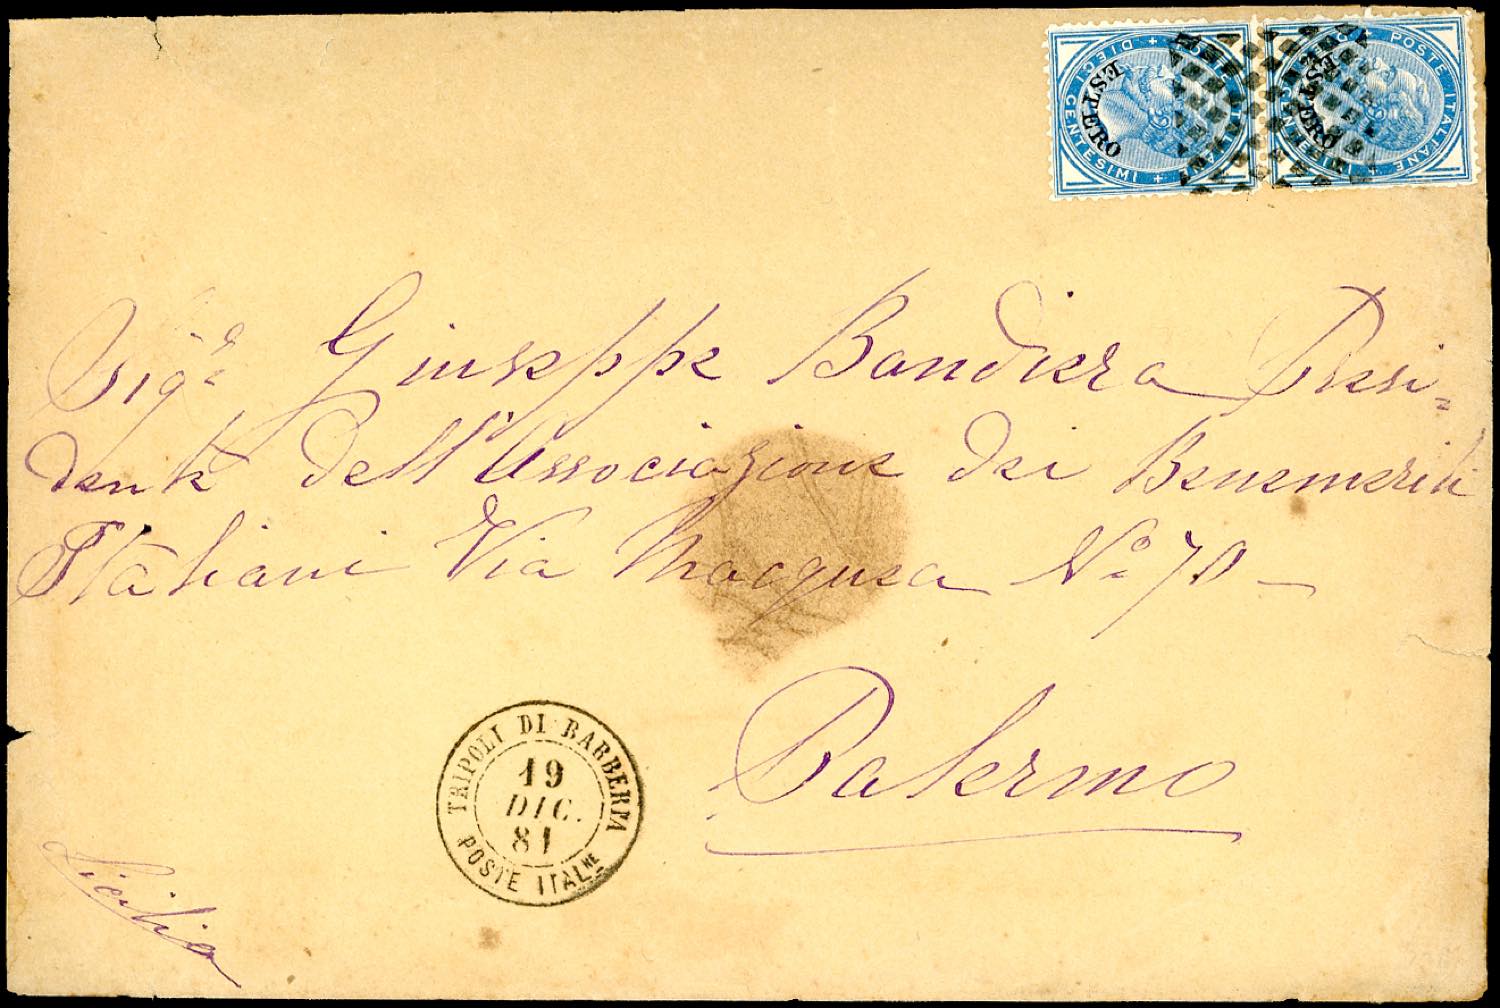 POSTE ITALIANE
DIECI CENTESIMI
ESTERO
POSTE ITALIANE
CENTESIMI
ESTERO
Sigr. Giuseppe Bandiera Presi=
dente dell'Associazione dei Benemeriti
Italiani Via Macqueda No. 70
Palermo
Sicilia
TRIPOLI DI BARBERIA
19
DIC.
81
POSTE ITALNE